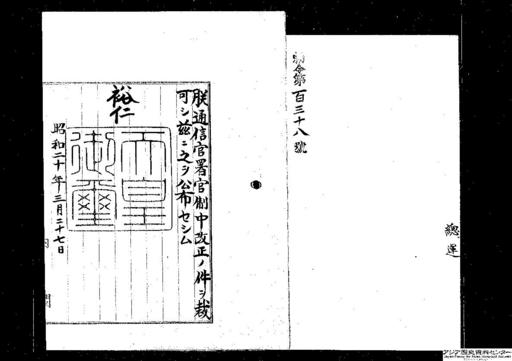 勅令第百三十八號
總運
朕通信官署官制中改正ノ件ヲ裁
可シ茲ニ之ヲ公布セシム
裕仁
天皇御璽
昭和二十年三月二十七日
内閣
アジア歴史資料センター
Japan Center for Asian Historical Records